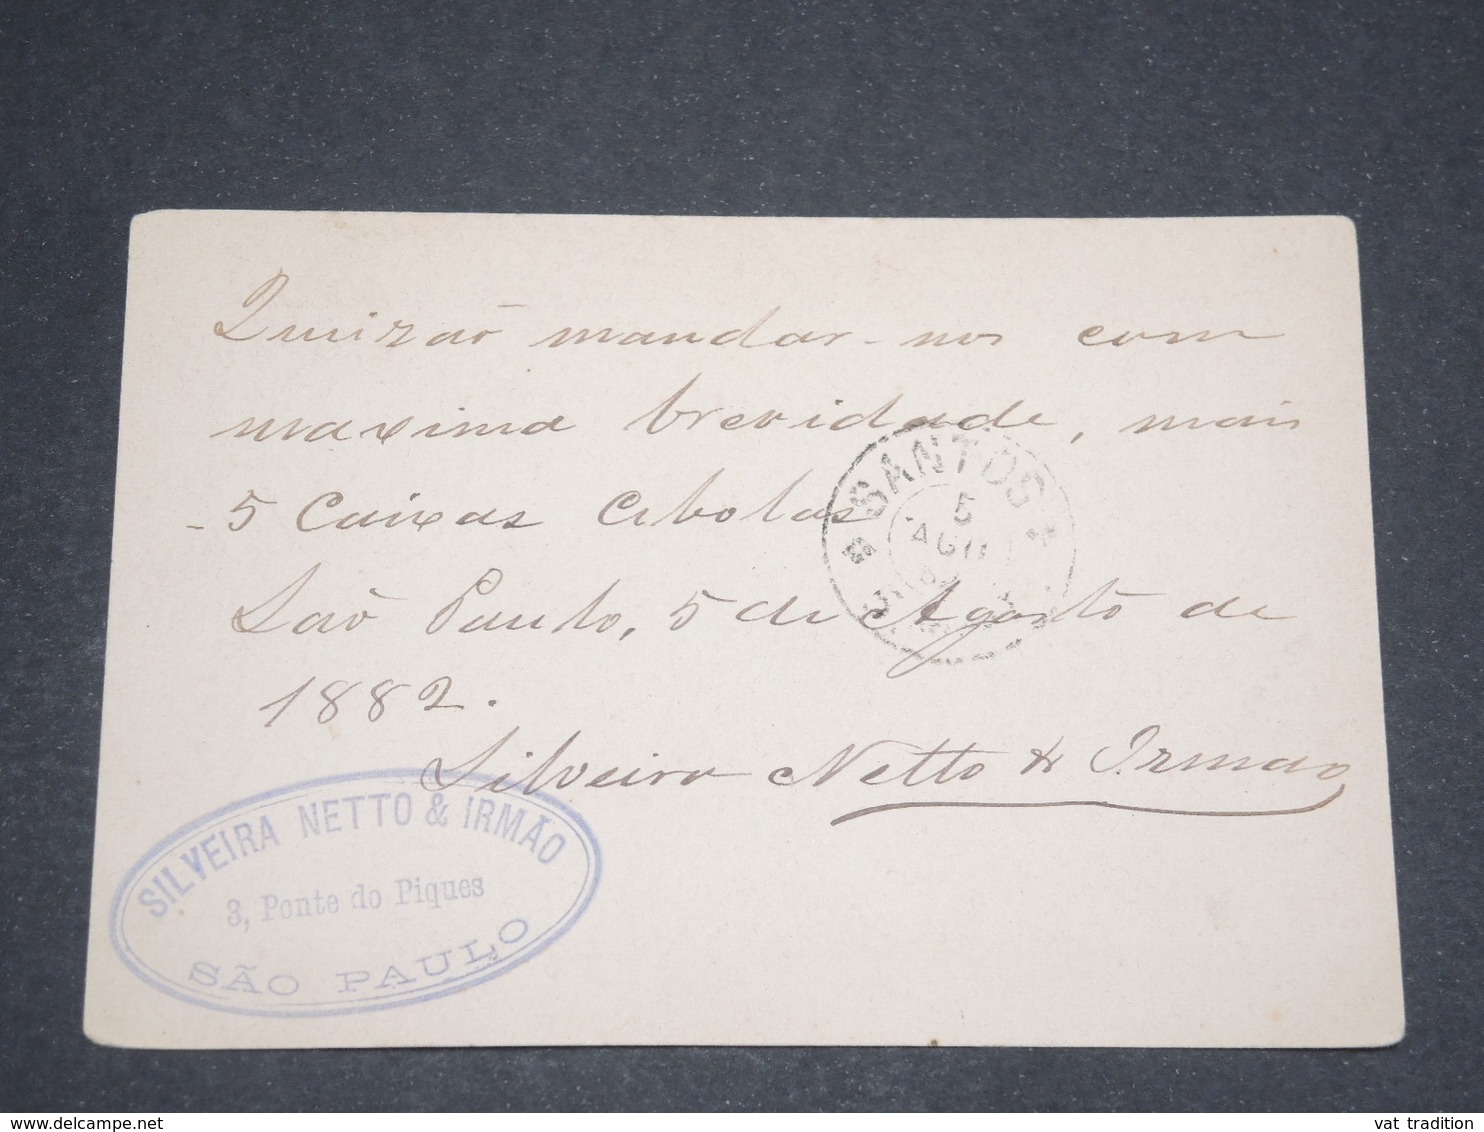 Quizraõ mandar-nos com
maxima brevidade, mais
-5 Caixas Cebolas
Saõ Paulo, 5 de Agosto de
1882.
Silveira Netto & Irmao
SANTOS
5
AGO
SILVEIRA NETTO & IRMÃO
3, Ponte do Piques
SÃO PAULO
vat tradition